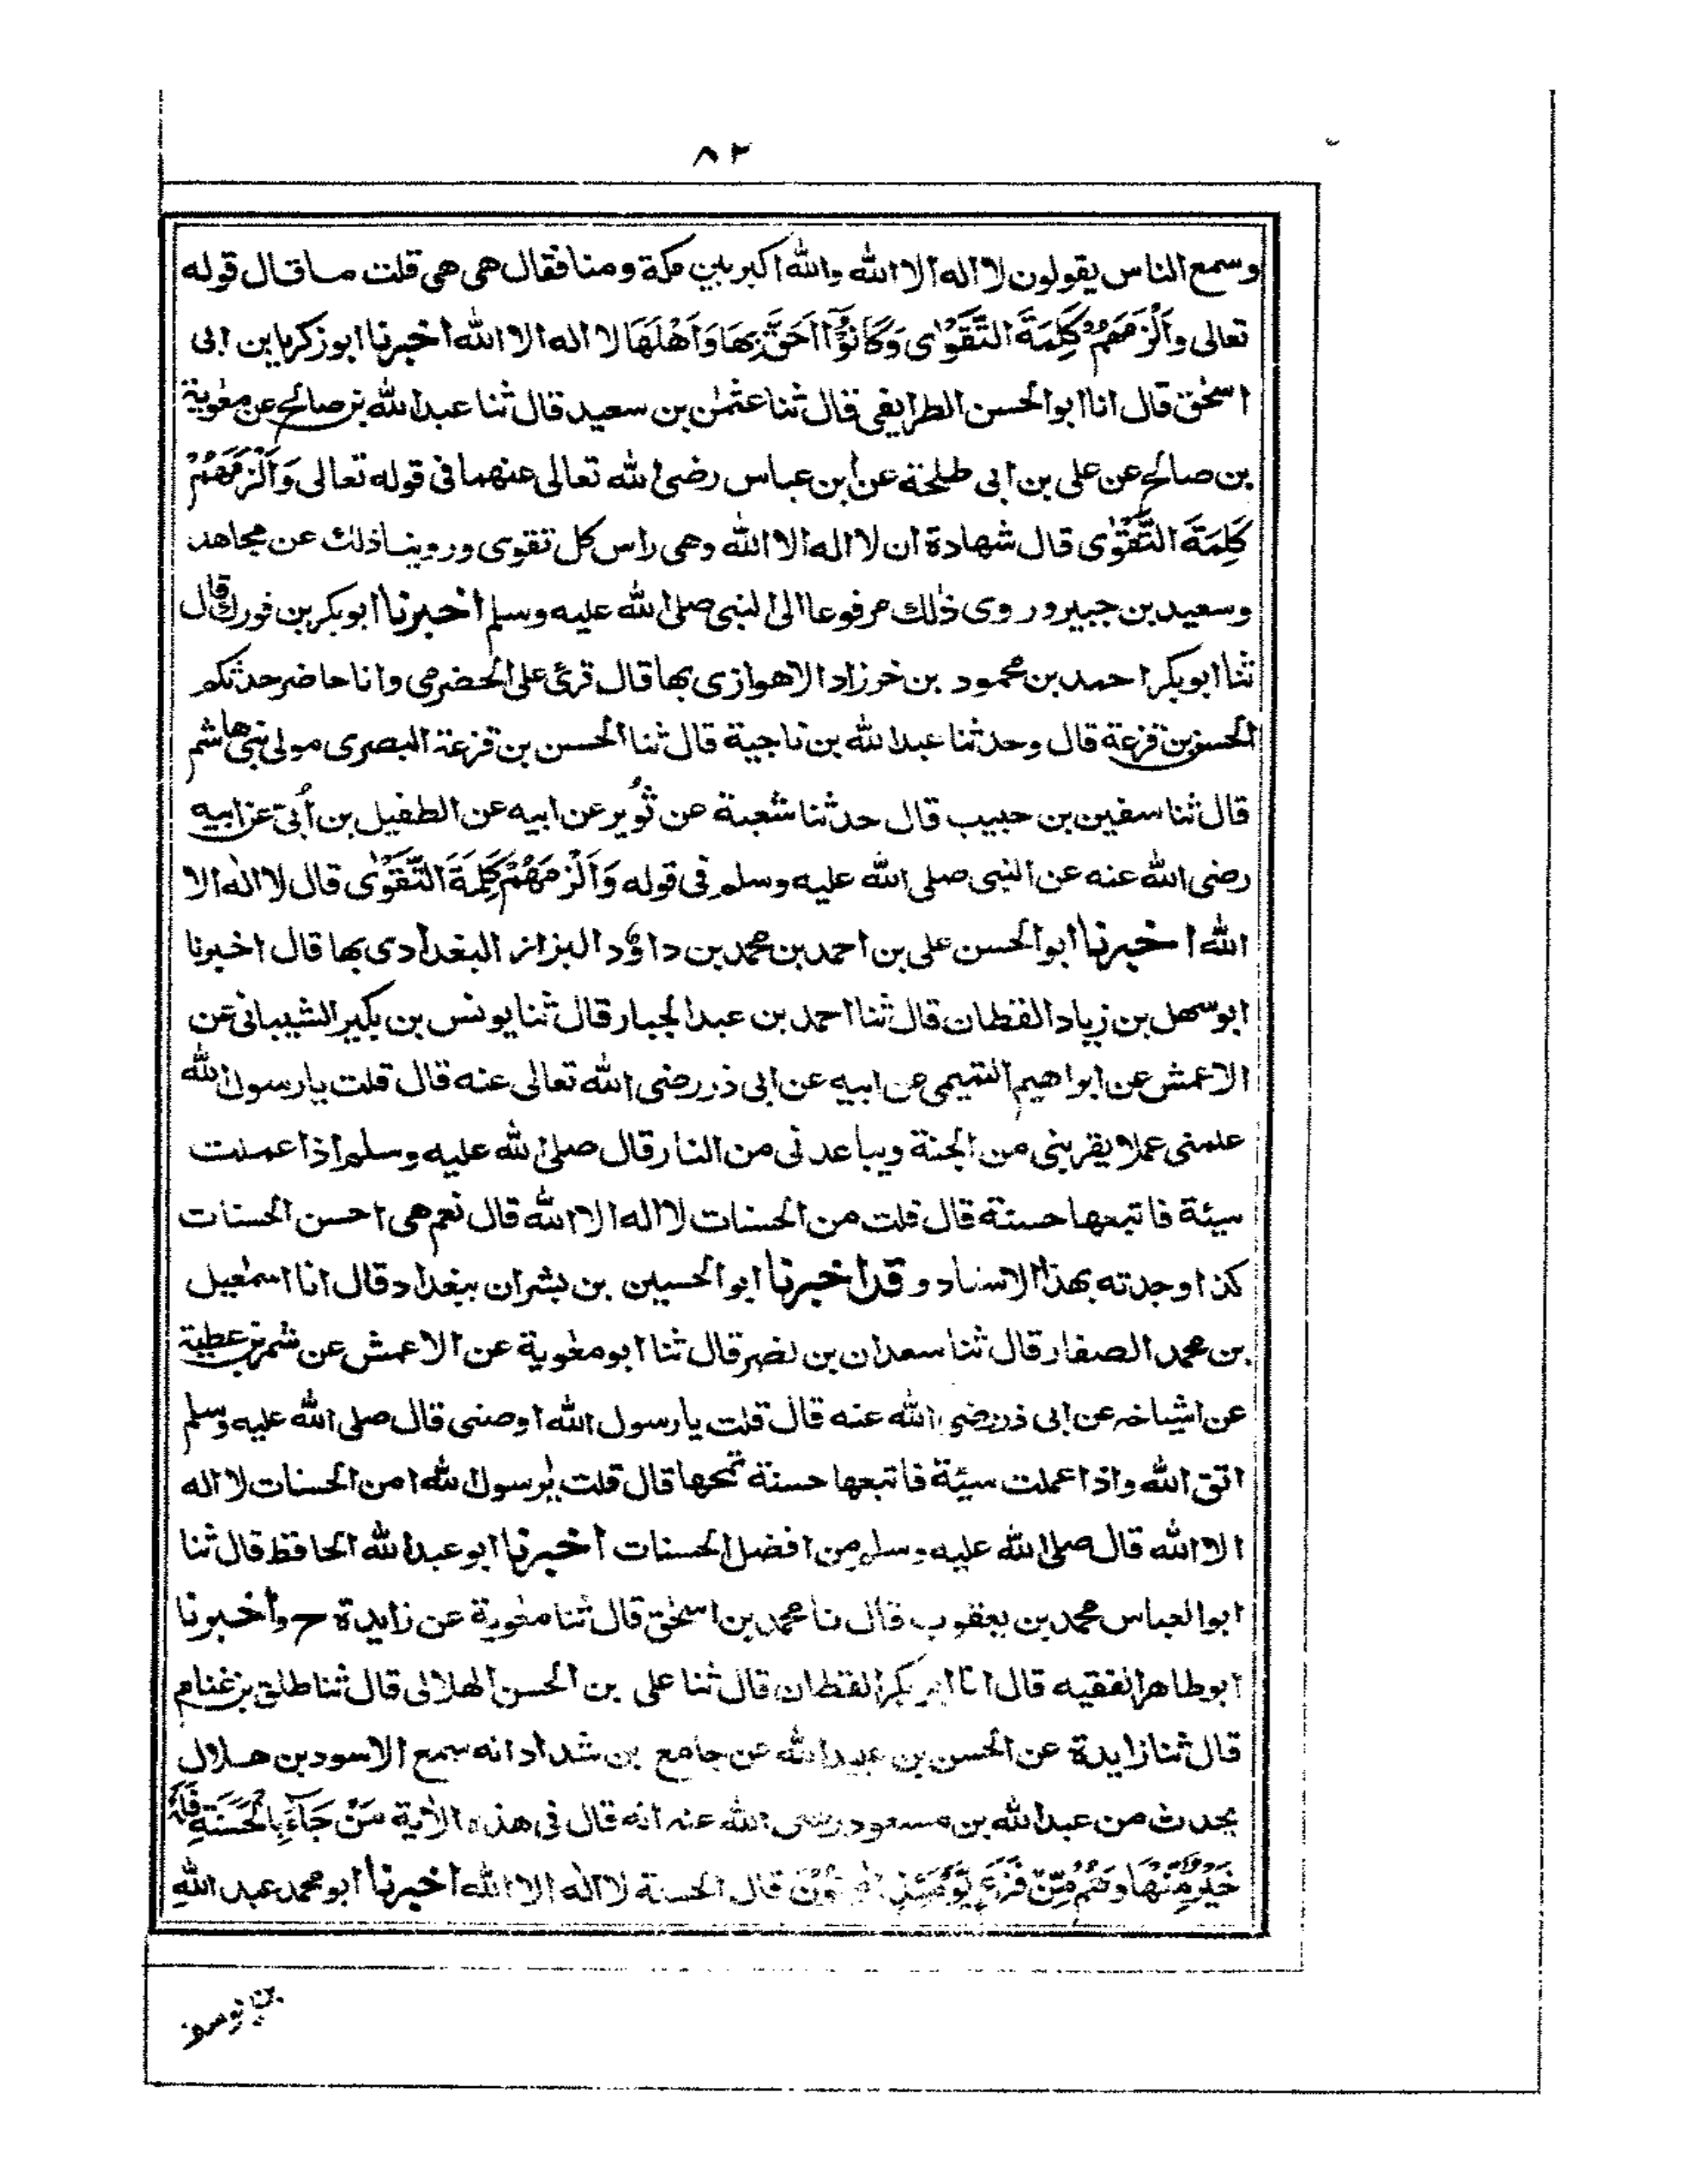 ٨٢
وسمع الناس يقولون لا اله الا الله والله اكبر بين مكة ومنا فقال هى هى قلت ما قال قوله
تعالى وَاَلْزَمَهُمْ كَلِمَةَ التَّقْوٰى وَكَانُوْٓا اَحَقَّ بِهَا وَاَهْلَهَا لا اله الا الله اخبرنا ابو زكريا بن ابى
اسحٰق قال انا ابو الحسن الطرايفى قال ثنا عثمٰن بن سعيد قال ثنا عبد الله بن صالح عن معٰوية
بن صالح عن على بن ابى طلحة عن ابن عباس رضى الله تعالى عنهما فى قوله تعالى وَاَلْزَمَهُمْ
كَلِمَةَ التَّقْوٰى قال شهادة ان لا اله الا الله وهى راس كل تقوى وروينا ذلك عن مجاهد
وسعيد بن جبير وروى ذٰلك مرفوعا الى النبى صلى الله عليه وسلم اخبرنا ابو بكر بن فورك قال
ثنا ابو بكر احمد بن محمود بن خرزاد الاهوازى بها قال قرئ على الحضرمى وانا حاضر حدثكم
الحسن بن قزعة قال وحدثنا عبد الله بن ناجية قال ثنا الحسن بن قزعة البصرى مولى بنى هاشم
قال ثنا سفين بن حبيب قال حدثنا شعبة عن ثُوير عن ابيه عن الطفيل بن اُبى عن ابيه
رضى الله عنه عن النبى صلى الله عليه وسلم فى قوله وَاَلْزَمَهُمْ كَلِمَةَ التَّقْوٰى قال لا اله الا
الله اخبرنا ابو الحسن على بن احمد بن محمد بن داؤد البزاز البغدادى بها قال اخبرنا
ابو سهل بن زياد القطان قال ثنا احمد بن عبد الجبار قال ثنا يونس بن بكير الشيبانى عن
الاعمش عن ابراهيم التيمى عن ابيه عن ابى ذر رضى الله تعالى عنه قال قلت يا رسول الله
علمنى عملا يقربنى من الجنة ويباعدنى من النار قال صلى الله عليه وسلم اذا عملت
سيئة فاتبعها حسنة قال قلت من الحسنات لا اله الا الله قال نعم هى احسن الحسنات
كذا وجدته بهذا الاسناد وقد اخبرنا ابو الحسين بن بشران ببغداد قال انا اسمٰعيل
بن محمد الصفار قال ثنا سعدان بن نصر قال ثنا ابو معٰوية عن الاعمش عن شمر بن عطية
عن اشياخه عن ابى ذر رضى الله عنه قال قلت يا رسول الله اوصنى قال صلى الله عليه وسلم
اتق الله واذا عملت سيئة فاتبعها حسنة تمحها قال قلت يٰرسول الله امن الحسنات لا اله
الا الله قال صلى الله عليه وسلم من افضل الحسنات اخبرنا ابو عبد الله الحافظ قال ثنا
ابو العباس محمد بن يعقوب قال نا محمد بن اسحٰق قال ثنا معٰوية عن زايدة ح واخبرنا
ابو طاهر الفقيه قال انا ابو بكر القطان قال ثنا على بن الحسن الهلالى قال ثنا طلق بن غنام
قال ثنا زايدة عن الحسن بن عبيد الله عن جامع بن شداد انه سمع الاسود بن هلال
يحدث من عبد الله بن مسعود رضى الله عنه انه قال فى هذه الاٰية مَنْ جَآءَ بِالْحَسَنَةِ فَلَهٗ
خَيْرٌ مِّنْهَا وَهُمْ مِّنْ فَزَعٍ يَّوْمَئِذٍ اٰمِنُوْنَ قال الحسنة لا اله الا الله اخبرنا ابو محمد عبد الله